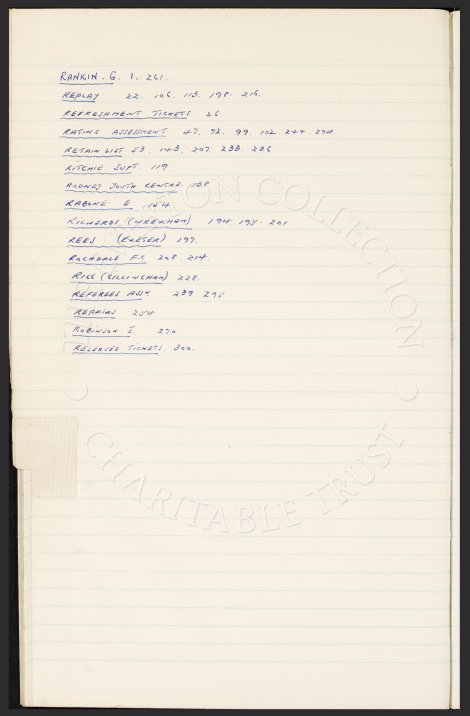 RANKIN. G. 1. 261.
REPLAY 22. 106. 113. 198. 216.
REFRESHMENT TICKETS 26
RATING ASSESSMENT 47. 72. 99. 102. 244. 274.
RETAIN LIST 53. 143. 207. 233. 286
RITCHIE SUPT. 119
RODNEY YOUTH CENTRE. 138
RABONE E 154.
RICHARDS (WREXHAM) 194. 198. 201
REES (EXETER) 197.
ROCHDALE F.C. 208. 214.
RIGG (GILLINGHAM) 228.
REFEREES ASSN. 239. 298
REPAIRS 254
ROBINSON. I 270.
RESERVED TICKETS. 300.
COLLECTION
CHARITABLE TRUST